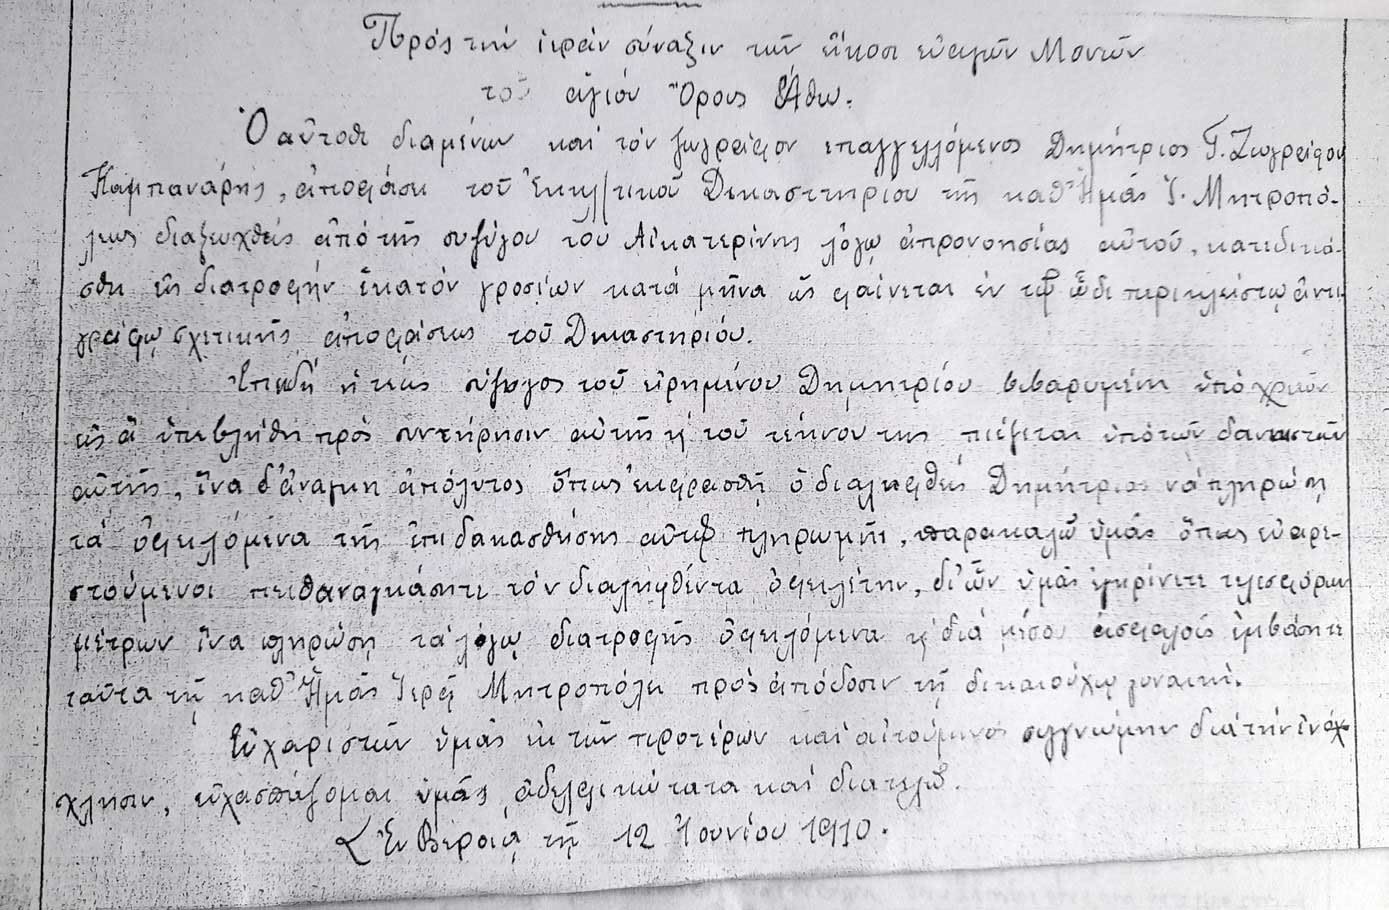 Πρός τήν ἱεράν σύναξιν τῶν εἴκοσι εὐαγῶν Μονῶν
τοῦ ἁγίου Ὄρους Ἄθω.
Ὁ αὐτόθι διαμένων καί τόν ζωγράφον ἐπαγγελλόμενος Δημήτριος Γ. Ζωγράφου
Καμπανάρης, ἀποφάσει τοῦ Ἐκκλ/τικοῦ Δικαστηρίου τῆς καθ' Ἡμᾶς Ἱ. Μητροπό-
λεως διαζευχθείς ἀπό τῆς συζύγου του Αἰκατερίνης λόγῳ ἀπρονοησίας αὐτοῦ, κατεδικά-
σθη εἰς διατροφήν ἑκατόν γροσίων κατά μῆνα ὡς φαίνεται ἐν τῷ ὧδε περικλείστῳ ἀντι-
γράφῳ σχετικῆς ἀποφάσεως τοῦ Δικαστηρίου.
Ἐπειδή ἡ τέως σύζυγος τοῦ εἰρημένου Δημητρίου βεβαρυμένη ὑπό χρεῶν
εἰς ἅ ὑπεβλήθη πρός συντήρησιν αὐτῆς κ' τοῦ τέκνου της πιέζεται ὑπό τῶν δανειστῶν
αὐτῆς, ἵνα δ' ἀνάγκη ἀπόλυτος ὅπως ὁ διαληφθείς Δημήτριος νά πληρώσῃ
τά ὀφειλόμενα τῆς ἐπιδικασθείσης αὐτῷ πληρωμῆς, παρακαλῶ ὑμᾶς ὅπως εὐαρε-
στούμενοι πειθαναγκάσητε τόν διαληφθέντα ὀφειλέτην, δι' ὧν ὑμεῖς ἐγκρίνετε τελεσφόρων
μέτρων ἵνα πληρώσῃ τά λόγῳ διατροφῆς ὀφειλόμενα κ' διά μέσου ἀσφαλοῦς ἐμβάσητε
ταῦτα τῇ καθ' Ἡμᾶς Ἱερᾷ Μητροπόλει πρός ἀπόδοσιν τῇ δικαιούχῳ γυναικί.
Εὐχαριστῶν ὑμᾶς ἐκ τῶν προτέρων καί αἰτούμενος συγγνώμην διά τήν ἐνόχ-
χλησιν, ἀσπάζομαι ὑμᾶς ἀδελφικώτατα καί διατελῶ.
Ἐν Βεροίᾳ τῇ 12 Ἰουνίου 1910.